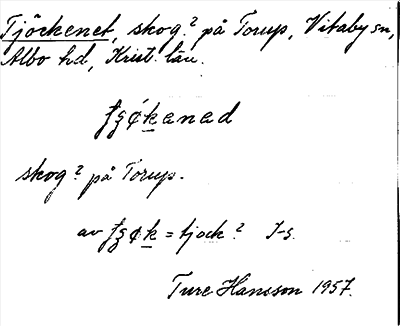 Tjöckenet, skog? på Torup, Vitaby sn,
Albo hd, Krist. län.
ʈʂǿkenad
skog? på Torup.
av ʈʂøk = tjock? J-s.
Ture Hansson 1957.